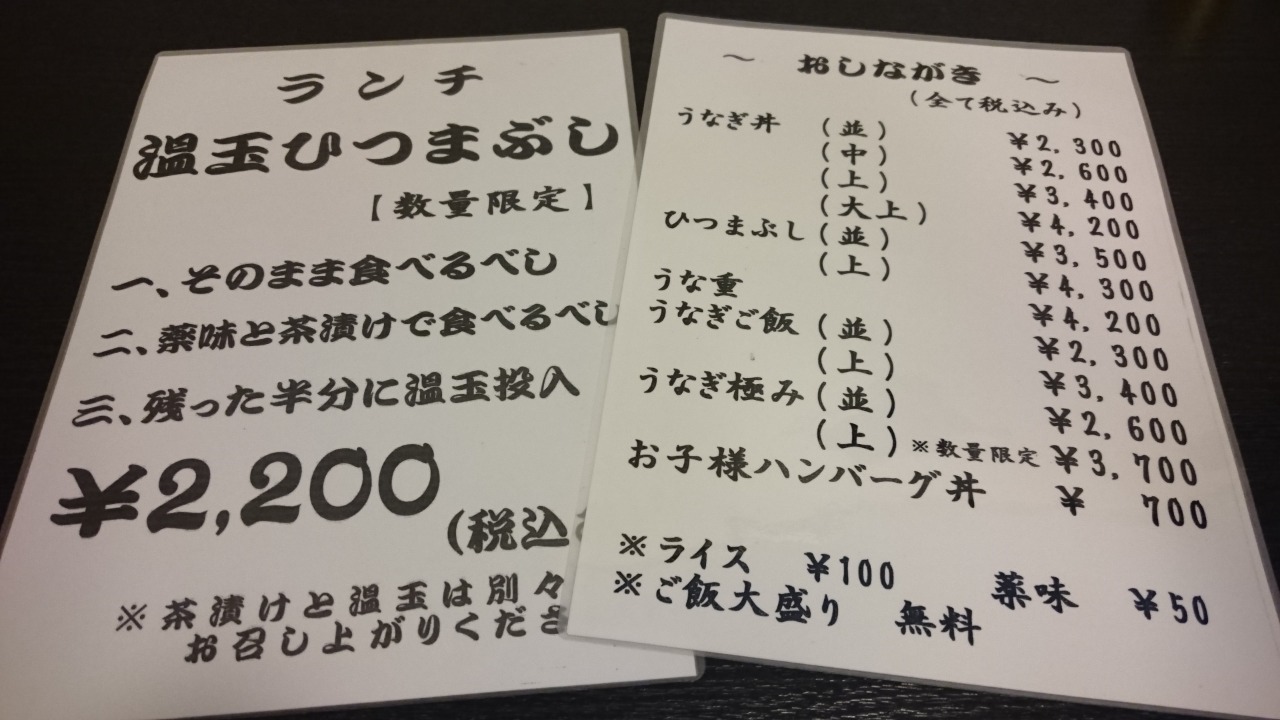 ランチ
温玉ひつまぶし
【数量限定】
一、そのまま食べるべし
二、薬味と茶漬けで食べるべし
三、残った半分に温玉投入
¥2,200
(税込
※茶漬けと温玉は別々
お召し上がりくださ
～ おしながき ～
(全て税込み)
うなぎ丼 (並) ¥2,300
(中) ¥2,600
(上) ¥3,400
(大上) ¥4,200
ひつまぶし (並) ¥3,500
(上) ¥4,300
うな重 ¥4,200
うなぎご飯 (並) ¥2,300
(上) ¥3,400
うなぎ極み (並) ¥2,600
(上) ※数量限定 ¥3,700
お子様ハンバーグ丼 ¥ 700
※ライス ¥100 薬味 ¥50
※ご飯大盛り 無料